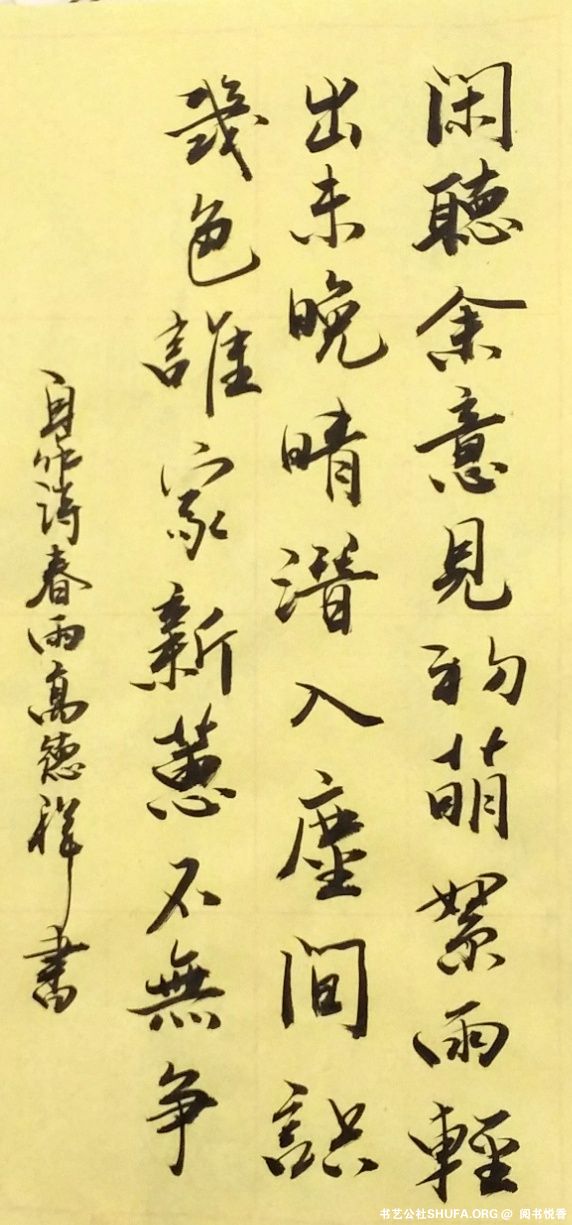 闲聽余意見初萌絮雨輕
出未晚晴潜入塵間識
幾色誰家新蕙不無争
自作詩春雨高德祥書
书艺公社SHUFA.ORG @ 阅书悦香